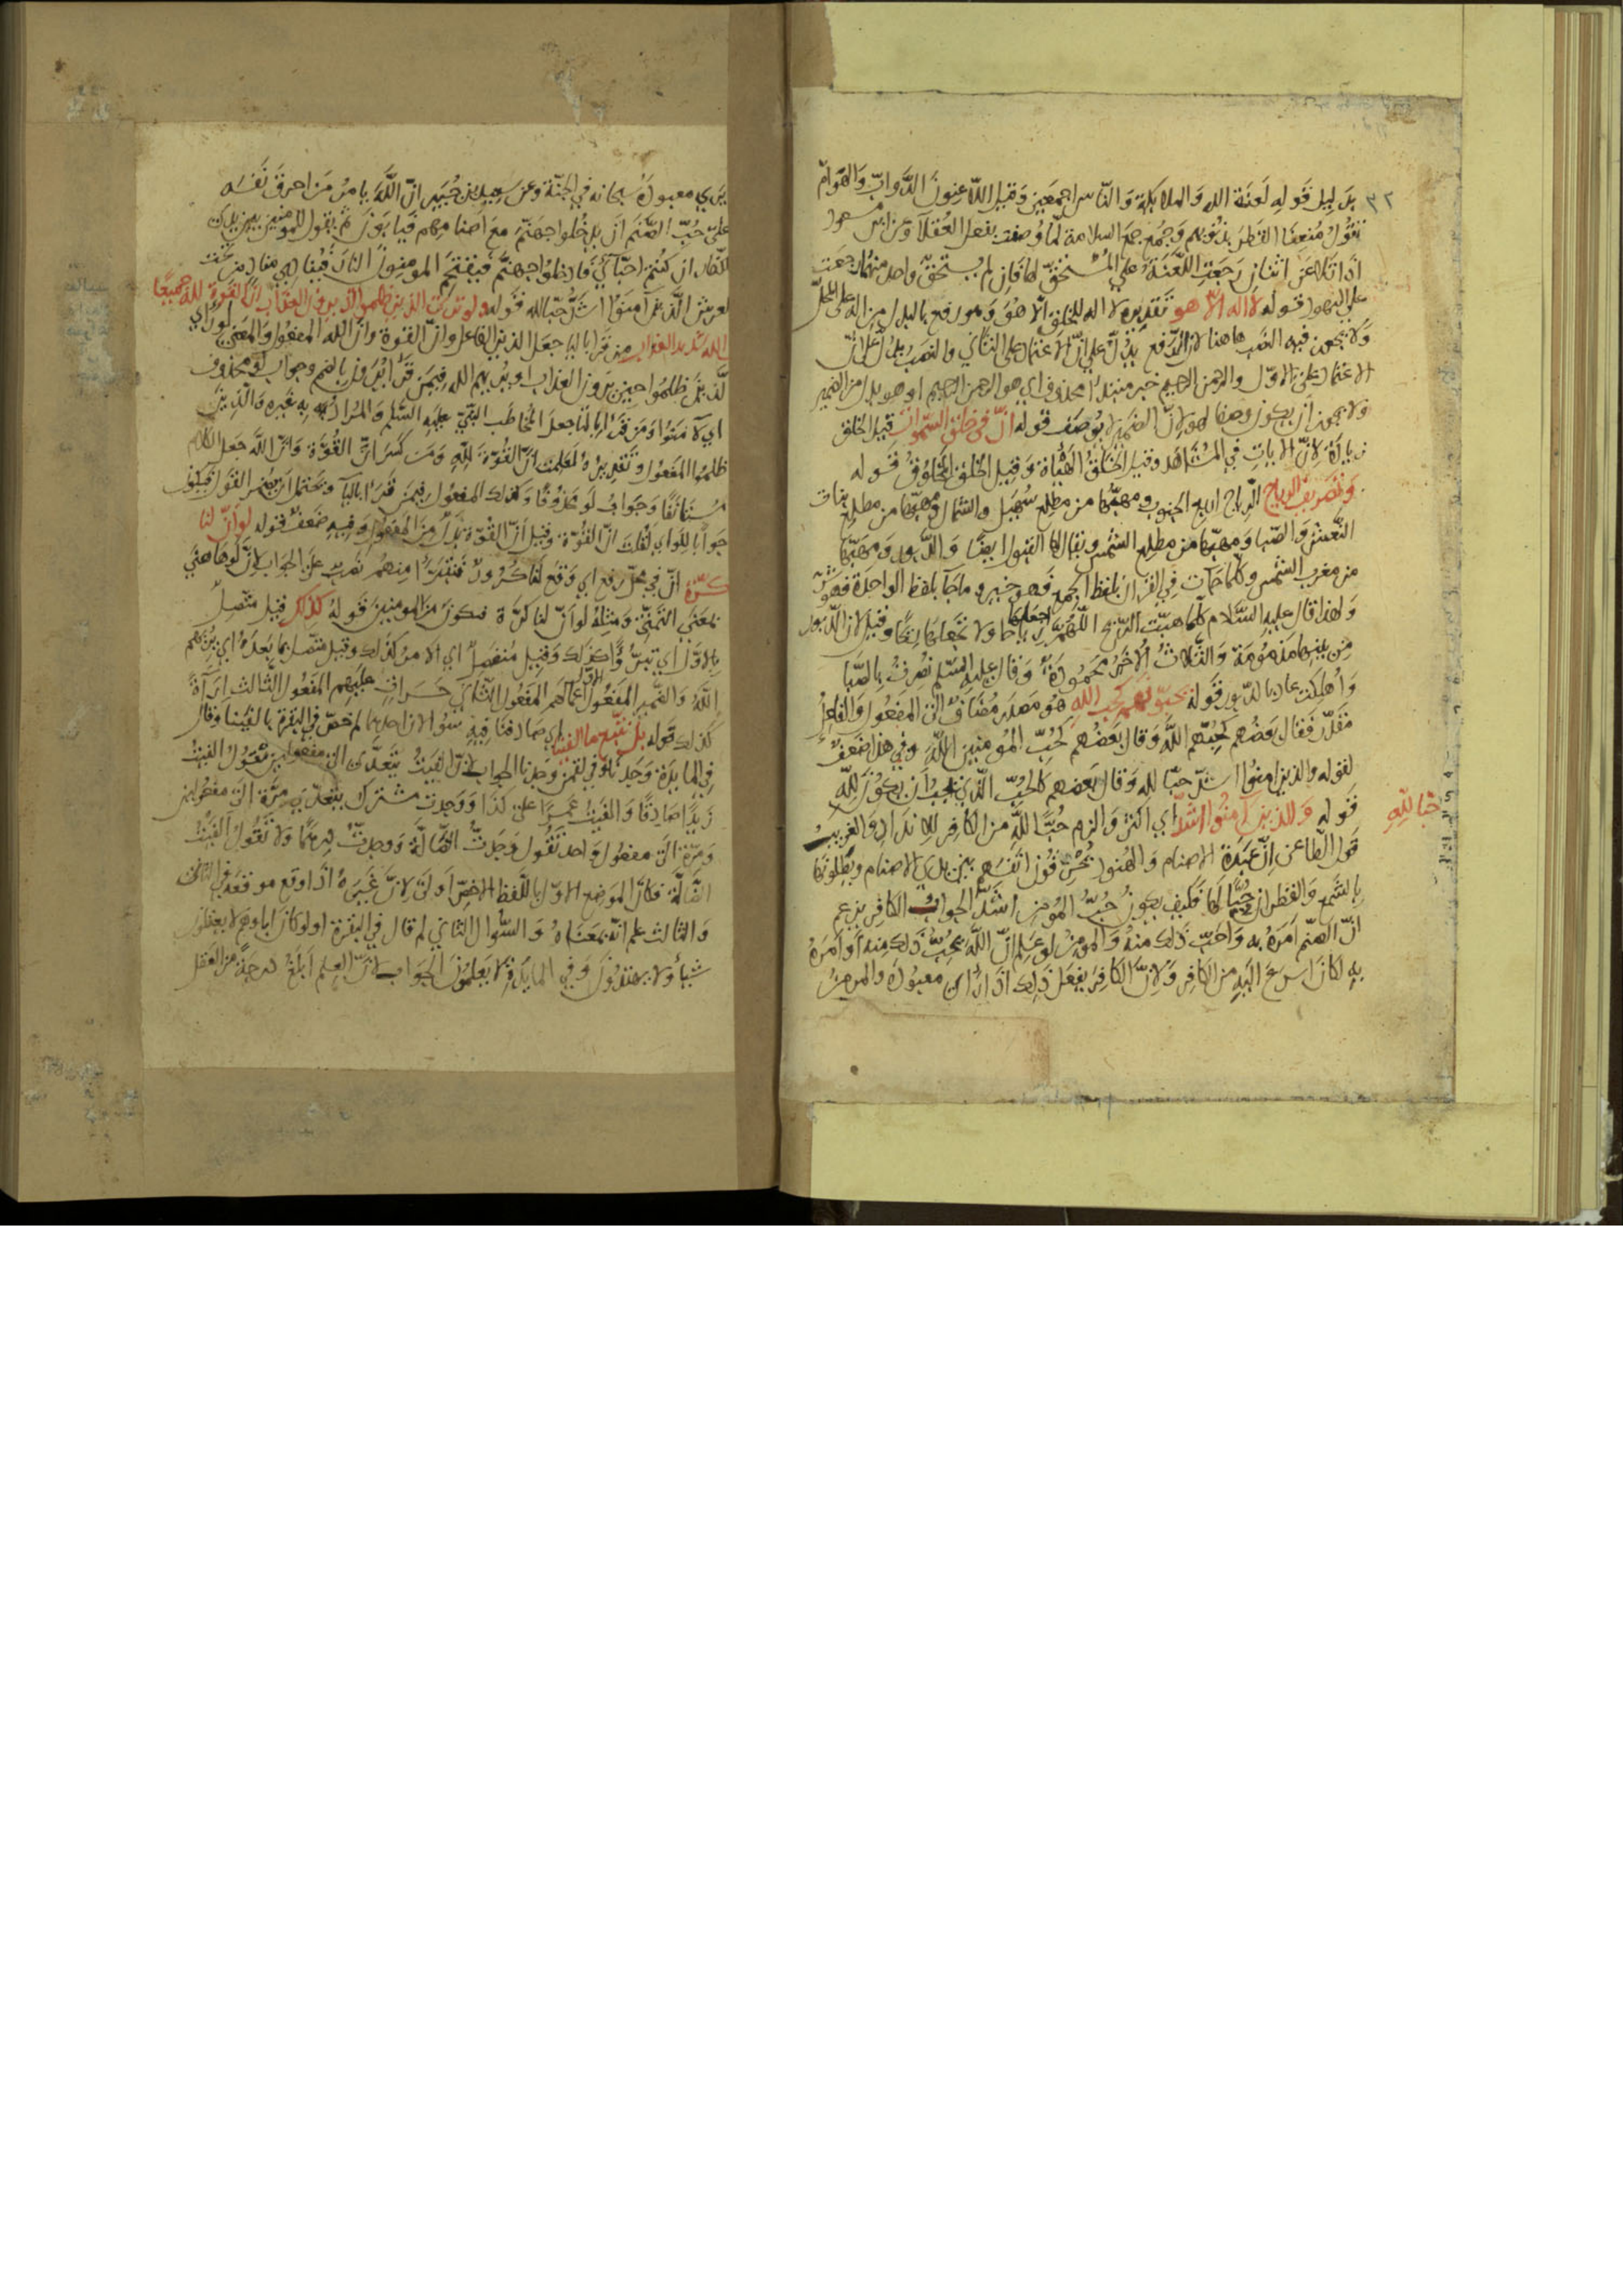 ٣٢
بدليل قوله لعنة الله والملائكة والناس اجمعين وقيل اللاعنون الدواب والهوام
تقول منعنا القطر بذنوبهم وجمع جمع السلامة لما وصفت بفعل العقلا وعن ابن مسعود
اذا تلاعن اثنان رجعت اللعنة على المستحق لها فان لم يستحق واحد منهما رجعت
على اليهود قوله لا اله الا هو تقديره لا اله للخلق الا هو وهو رفع بالبدل من اله على المحل
ولا يجوز فيه النصب هاهنا لان الرفع يدل على ان الاعتماد على الثاني والنصب يدل على ان
الاعتماد على الاول والرحمن الرحيم خبر مبتدا محذوف اي هو الرحمن الرحيم او هو بدل من الضمير
ولا يجوز ان يكون وصفا لهو لان الضمير لا يوصف قوله ان في خلق السموات قيل الخلق
زيادة لان الايات في المشاهد وقيل الخلق الهيأة وقيل الخلق المخلوق قوله
وتصريف الرياح الرياح اربع الجنوب ومهبها من مطلع سهيل والشمال ومهبها من مطلع بنات
النعش والصبا ومهبها من مطلع الشمس ويقال لها القبول ايضا والدبور ومهبها
من مغرب الشمس وكلما جات في القران بلفظ الجمع فهو خير وما جا بلفظ الواحدة فهو شر
ولهذا قال عليه السلام كلما هبت الريح اللهم اجعلها رياحا ولا تجعلها ريحا وقيل لان الدبور
من بينها مذمومة والثلاث الاخر محمودة وقال عليه السلم نصرت بالصبا
واهلكت عاد بالدبور قوله يحبونهم كحب الله هو مصدر مضاف الى المفعول والفاعل
مقدر فقال بعضهم كحبهم الله وقال بعضهم كحب المومنين الله وفي هذا ضعف
لقوله والذين امنوا اشد حبا لله وقال بعضهم كالحب الذي يجب ان يكون لله
قوله والذين آمنوا اشد اي اكثر والزم حبا لله من الكافر للانداد والغريب
حبا لله
قول الطاعن ان عبدة الاصنام والهنود يحرقون انفسهم بين يدي الاصنام ويطلونها
بالشمع والقطران حبا لها فكيف يكون حب المومن اشد الجواب الكافر يزعم
ان الصنم امره به واحب ذلك منه والمومن لو علم ان الله يحب ذلك منه او امره
به لكان اسرع اليه من الكافر ولان الكافر يفعل ذلك اذا راى معبوده والمومن
يرى معبوده سبحانه في الجنة وعن سعيد بن جبير ان الله يامر من احرق نفسه
على حب الصنم ان يدخلوا جهنم مع اصنامهم فيابون ثم يقول للمومنين بين يدي
الكفار ان كنتم احبائي فادخلوا جهنم فيقتحم المومنون النار فينادي مناد من تحت
العرش الذين آمنوا اشد حبا لله قوله ولو ترى الذين ظلموا اذ يرون العذاب ان القوة لله جميعا
الله شديد العذاب من قرا باليا جعل الذين الفاعل وان القوة وان الله المفعول والمعنى لو راى
الذين ظلموا حين يرون العذاب ويريهم الله فيمن قرا يرون بالضم وجواب لو محذوف
اي لآمنوا ومن قرا بالتا جعل المخاطب النبي عليه السلم والمراد به غيره والذين
ظلموا المفعول وتقديره لعلمت ان القوة لله ومن كسر ان القوة وان الله جعل الكلام
مستانفا وجواب لو محذوفا وكذلك المفعول فيمن قرا باليا ويحتمل ان يضمر القول فيكون
جوابا للو اي لقلت ان القوة وقيل ان القوة بدل من المفعول وفيه ضعف قوله لو ان لنا
كرة ان في محل رفع اي وقع لنا كرور فنتبرا منهم نصب على الجواب لان لو هاهنا
بمعنى التمني ومثله لو ان لنا كرة فنكون من المومنين قوله كذلك قيل متصل
بالاول اي تبرؤا كذلك وقيل منفصل اي الامر كذلك وقيل متصل بما بعده اي يريهم
الله والضمير المفعول الاول اعمالهم المفعول الثاني حسرات عليهم المفعول الثالث اراءة
كذلك قوله بل نتبع ما الفينا اي صادفنا فيه سؤالان احدهما لم خص في البقرة بالفينا وقال
في المايدة وجدنا وفي لقمن وجدنا الجواب لان الفيت يتعدى الى مفعولين تقول الفيت
زيدا صادقا والفيت عمرا على كذا ووجدت مشترك يتعدى مرة الى مفعولين
ومرة الى مفعول واحد تقول وجدت الضالة ووجدت درهما ولا تقول الفيت
الضالة فكان الموضع الاول باللفظ الاخص اولى لان غيره اذا وقع موقعه في الثاني
والثالث علم انه بمعناه والسؤال الثاني لم قال في البقرة اولو كان اباوهم لا يعقلون
شيأ ولا يهتدون وفي المايدة لا يعلمون الجواب لان العلم ابلغ درجة من العقل